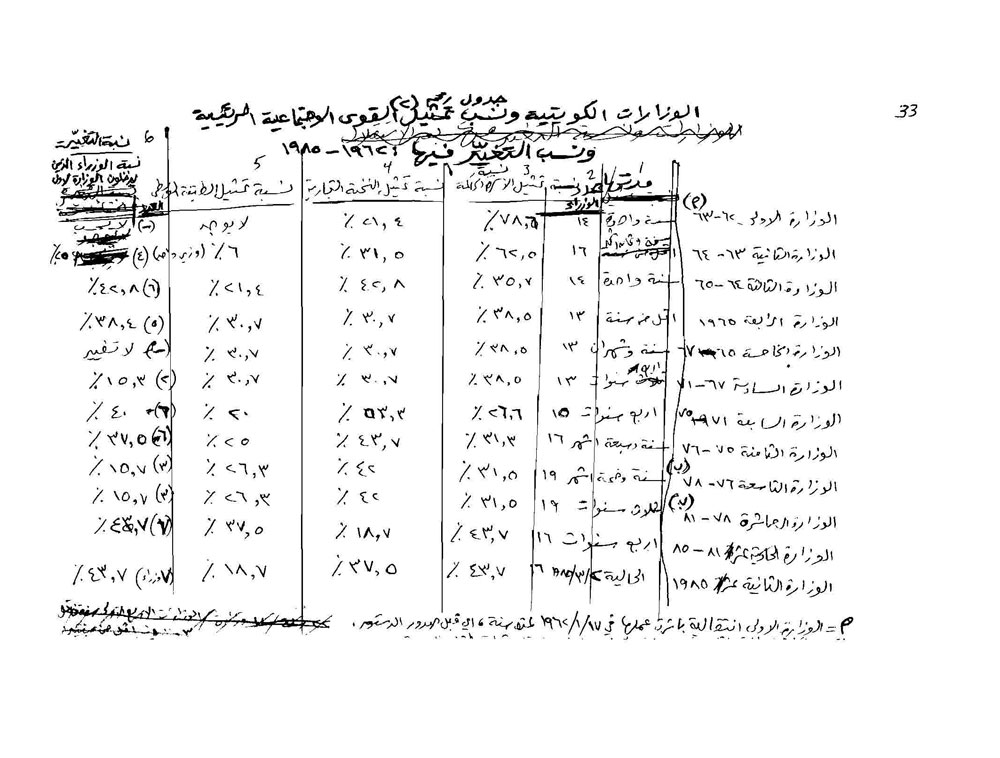 33
جدول رقم (٢)
الوزارات الكويتية ونسب تمثيل القوى الاجتماعية الرئيسية
ونسب التغيّر فيها : ١٩٦٢ – ١٩٨٥
مدتها 2 عدد الوزراء 3 نسبة تمثيل الأسرة الحاكمة 4 نسبة تمثيل النخبة التجارية 5 نسبة تمثيل الطبقة الوسطى 6 نسبة التغيّر نسبة الوزراء الذين يدخلون الوزارة لأول
الوزارة الاولى ٦٢-٦٣ (م) سنة واحدة ١٤ ٧٨,٦٪ ٢١,٤٪ لا يوجد (-)
الوزارة الثانية ٦٣-٦٤ ١٦ ٦٢,٥٪ ٣١,٥٪ ٦٪ (وزير واحد) (٤) ٢٥٪
الوزارة الثالثة ٦٤-٦٥ سنة واحدة ١٤ ٣٥,٧٪ ٤٢,٨٪ ٢١,٤٪ (٦) ٤٢,٨٪
الوزارة الرابعة ١٩٦٥ اقل من سنة ١٣ ٣٨,٥٪ ٣٠,٧٪ ٣٠,٧٪ (٥) ٣٨,٤٪
الوزارة الخامسة ٦٥-٦٧ سنة وشهران ١٣ ٣٨,٥٪ ٣٠,٧٪ ٣٠,٧٪ لا تغيير
الوزارة السادسة ٦٧-٧١ سنوات ١٣ ٣٨,٥٪ ٣٠,٧٪ ٣٠,٧٪ (٢) ١٥,٣٪
الوزارة السابعة ١٩٧١-٧٥ اربع سنوات ١٥ ٢٦,٦٪ ٥٣,٣٪ ٢٠٪ (٦) ٤٠٪
الوزارة الثامنة ٧٥-٧٦ سنة وسبعة اشهر ١٦ ٣١,٣٪ ٤٣,٧٪ ٢٥٪ (٦) ٣٧,٥٪
الوزارة التاسعة ٧٦-٧٨ (ب) سنة وخمسة اشهر ١٩ ٣١,٥٪ ٤٢٪ ٢٦,٣٪ (٣) ١٥,٧٪
الوزارة العاشرة ٧٨-٨١ (ب) ثلاث سنوات ١٩ ٣١,٥٪ ٤٢٪ ٢٦,٣٪ (٣) ١٥,٧٪
الوزارة الحادية عشر ٨١-٨٥ اربع سنوات ١٦ ٤٣,٧٪ ١٨,٧٪ ٣٧,٥٪ ٤٣,٧٪
الوزارة الثانية عشر ١٩٨٥ الحالية ١٦ ٤٣,٧٪ ٣٧,٥٪ ١٨,٧٪ (٧ وزراء) ٤٣,٧٪
م = الوزارة الاولى انتقالية باشرت عملها في ١٩٦٢/١/١٧ لمدة سنة ، أي قبل صدور الدستور.